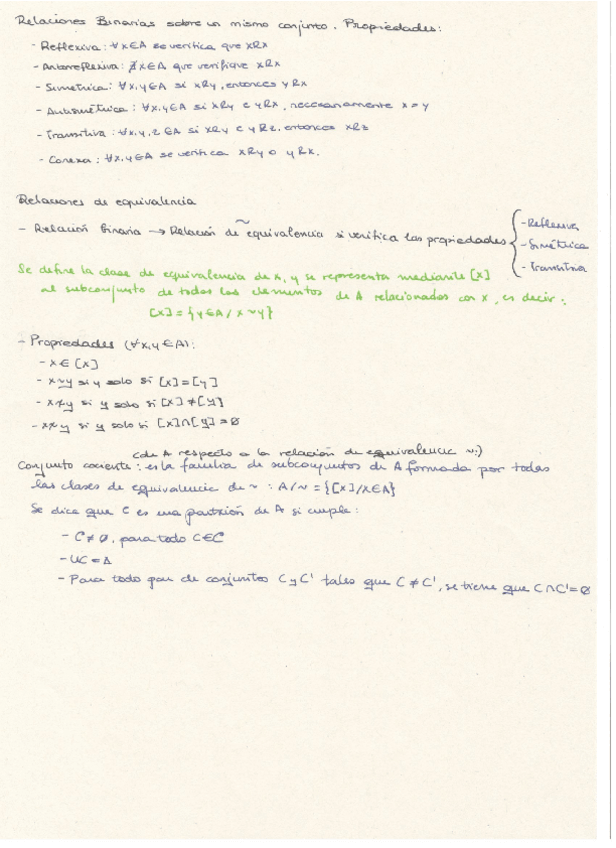 Relaciones Binarias sobre un mismo conjunto. Propiedades:
- Reflexiva: ∀x∈A se verifica que xRx
- Antirreflexiva: ∄x∈A que verifique xRx
- Simétrica: ∀x,y∈A si xRy, entonces yRx
- Antisimétrica: ∀x,y∈A si xRy e yRx, necesariamente x=y
- Transitiva: ∀x,y,z∈A si xRy e yRz, entonces xRz
- Conexa: ∀x,y∈A se verifica xRy o yRx.
Relaciones de equivalencia
- Relación Binaria → Relación de equivalencia si verifica las propiedades
~
- Reflexiva
- Simétrica
- Transitiva
Se define la clase de equivalencia de x, y se representa mediante [x]
al subconjunto de todos los elementos de A relacionados con x, es decir:
[x]={y∈A/x~y}
- Propiedades (∀x,y∈A):
- x∈[x]
- x~y si y solo si [x]=[y]
- x≁y si y solo si [x]≠[y]
- x≁y si y solo si [x]∩[y]=∅
(de A respecto a la relación de equivalencia ~:)
Conjunto cociente: es la familia de subconjuntos de A formada por todas
las clases de equivalencia de ~: A/~={[x]/x∈A}
Se dice que C es una partición de A si cumple:
- C≠∅, para todo C∈C
- UC=A
- Para todo par de conjuntos C y C' tales que C≠C', se tiene que C∩C'=∅